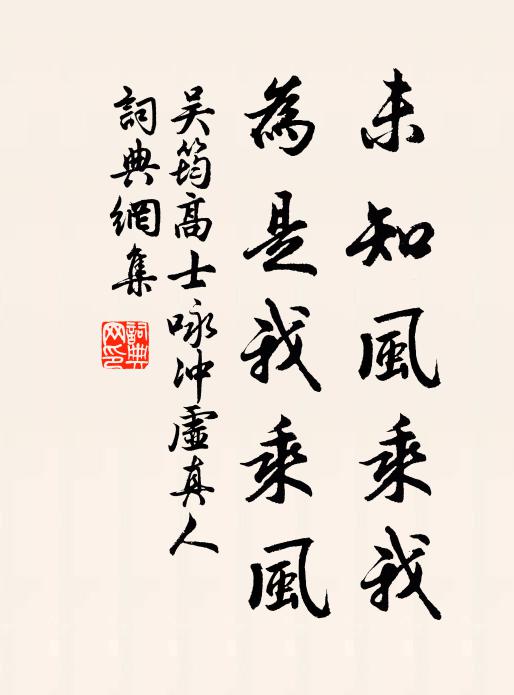 未知風乘我
為是我乘風
吳筠高士咏沖虛真人
詞典網集
詞典網印